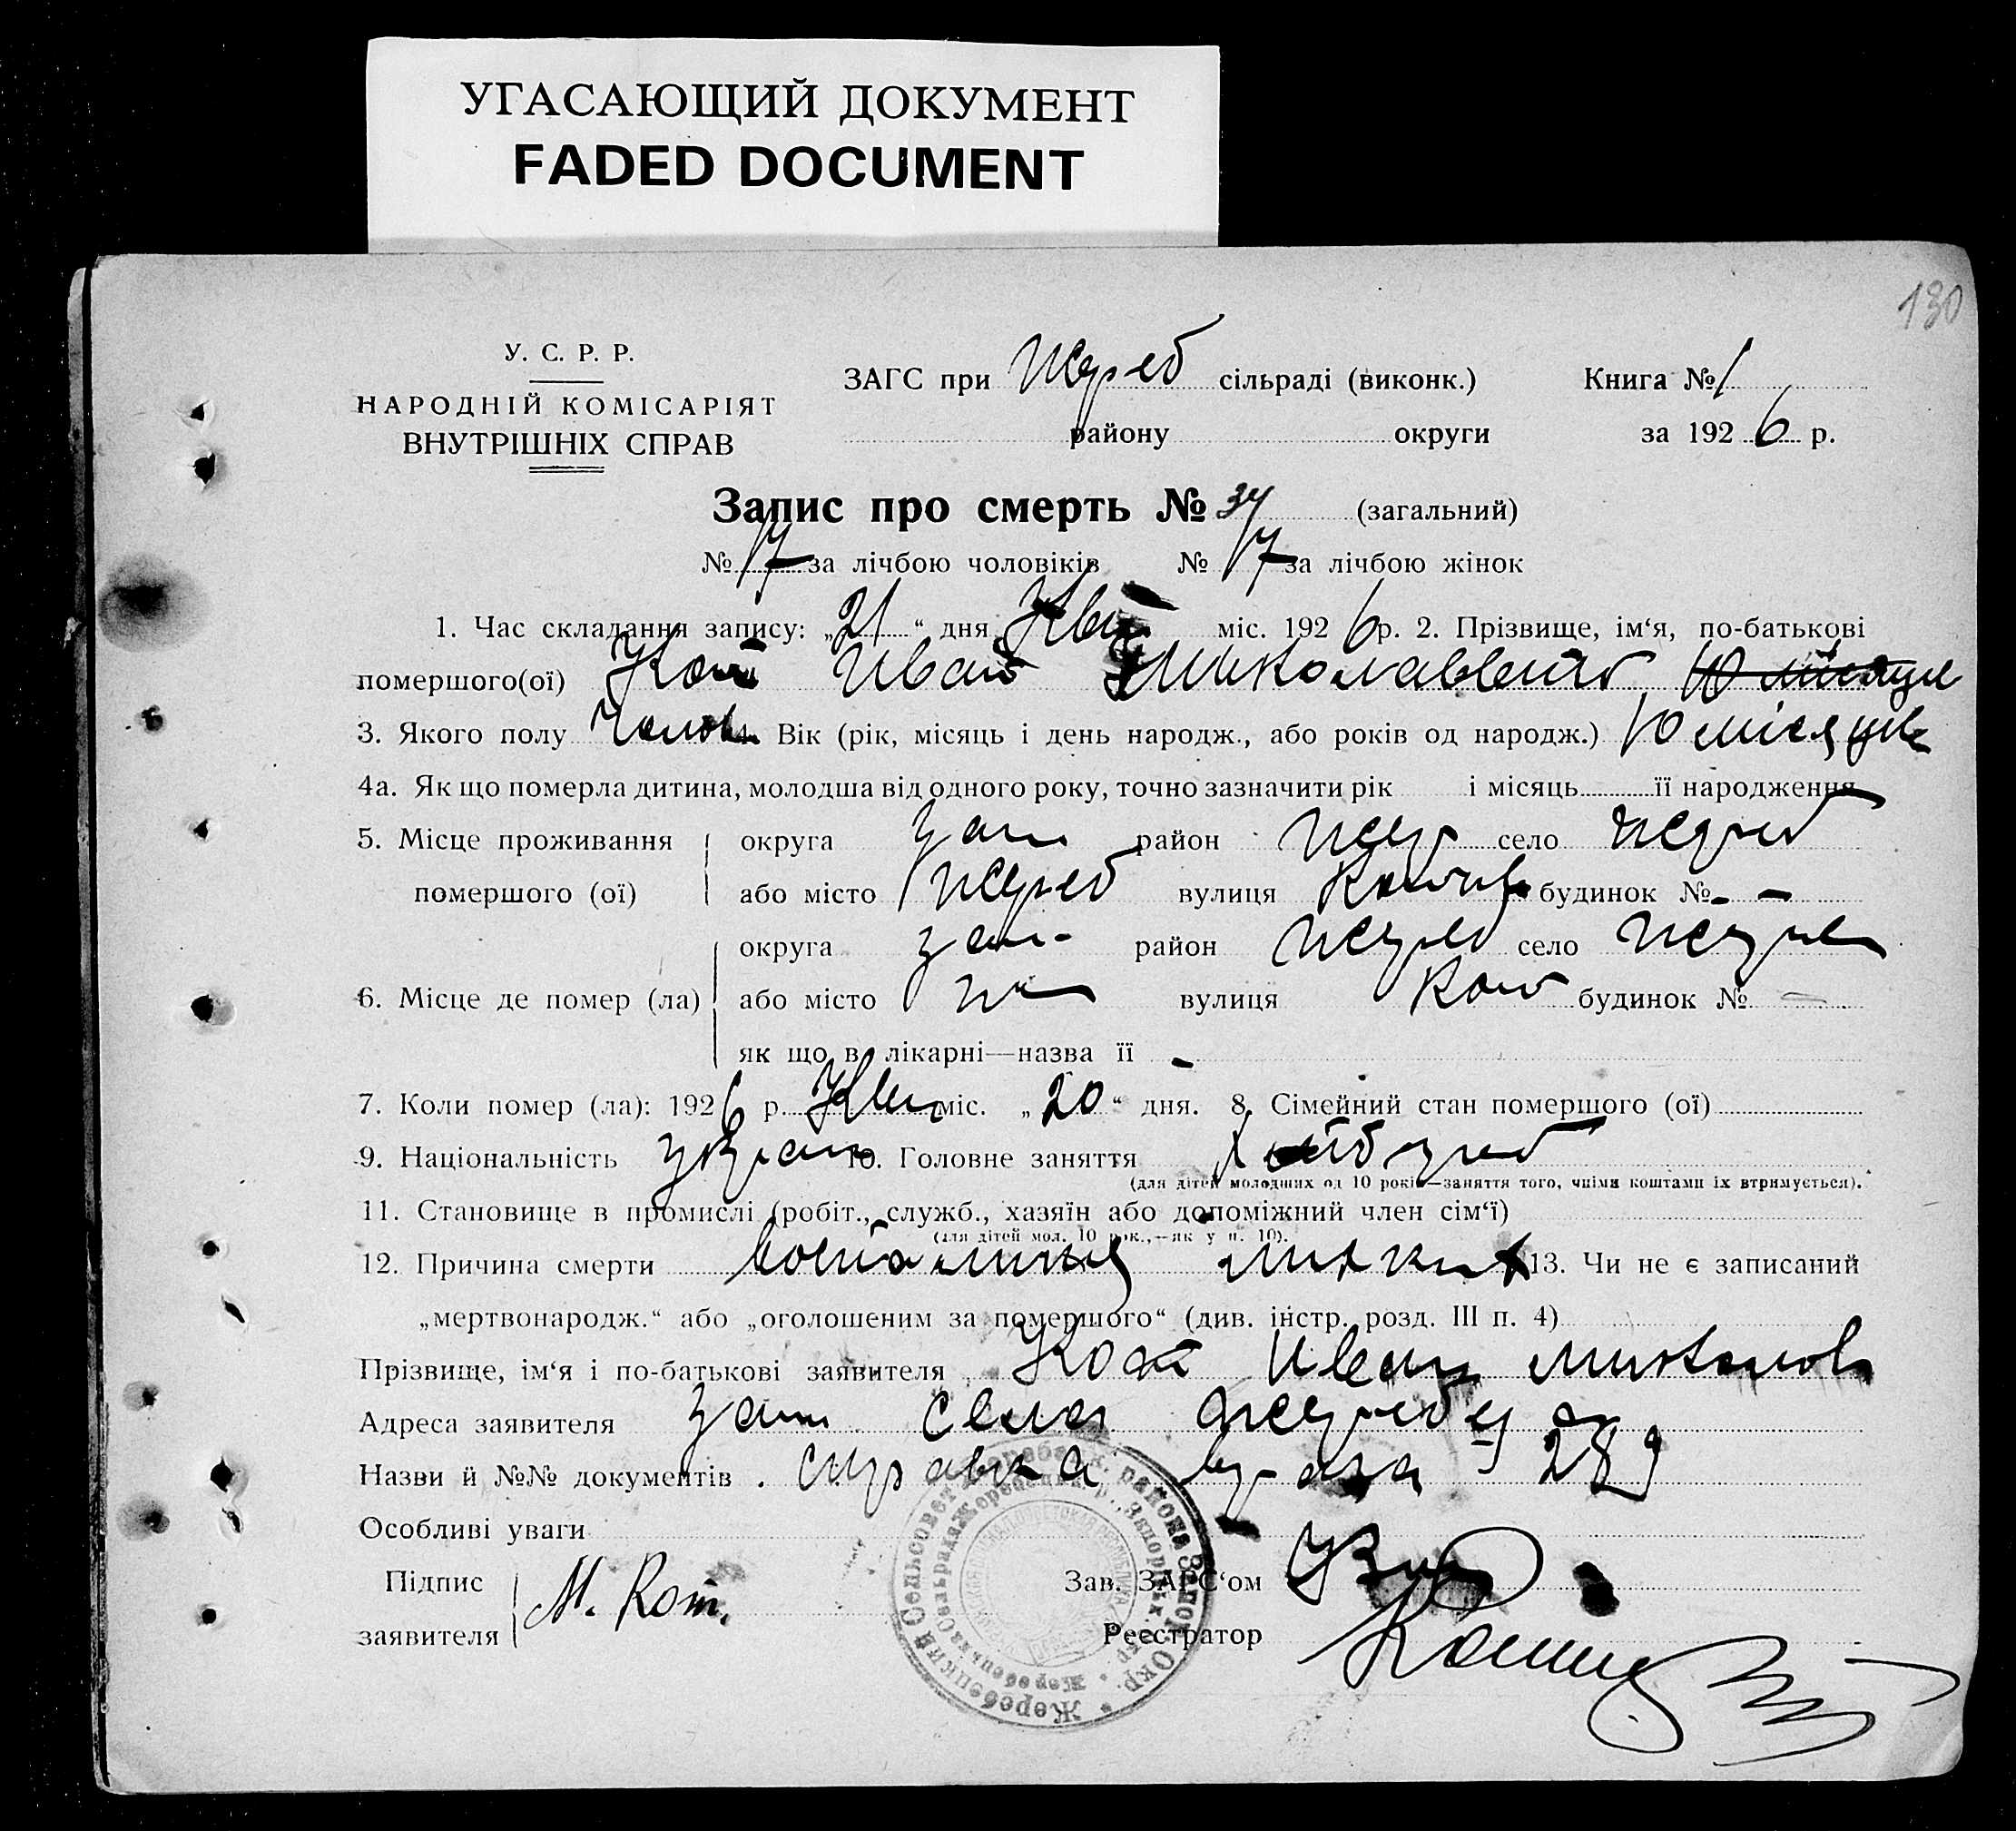 УГАСАЮЩИЙ ДОКУМЕНТ
FADED DOCUMENT
130
У. С. Р. Р.
НАРОДНІЙ КОМІСАРІЯТ
ВНУТРІШНІХ СПРАВ
ЗАГС при Жереб сільраді (виконк.) Книга № 1
району округи за 1926 р.
Запис про смерть № 34 (загальний)
№ 17 за лічбою чоловіків № 17 за лічбою жінок
1. Час складання запису: „21“ дня Квіт міс. 1926 р. 2. Прізвище, ім‘я, по-батькові
помершого(ої) Кот Иван Миколаевич 10 місяце
3. Якого полу Чолов 4. Вік (рік, місяць і день народж., або років од народж.) 10 місяців
4а. Як що померла дитина, молодша від одного року, точно зазначити рік і місяць її народження
5. Місце проживання округа Зап район Жер село Жереб
помершого (ої) або місто Жереб вулиця будинок № - -
округа Зап- район Жереб село Жереб
6. Місце де помер (ла) або місто вулиця будинок № —
як що в лікарні—назва її -
7. Коли помер (ла): 1926 р. Квіт міс. „20“ дня. 8. Сімейний стан помершого (ої)
9. Національність Украин 10. Головне заняття хлібороб
(для дітей молодших од 10 років—заняття того, чиїми коштами їх втримується).
11. Становище в промислі (робіт., служб., хазяїн або допоміжний член сім‘ї)
(для дітей мол. 10 рок.,—як у п. 10).
12. Причина смерти 13. Чи не є записаний
„мертвонародж.“ або „оголошеним за помершого“ (див. інстр. розд. III п. 4)
Прізвище, ім‘я і по-батькові заявителя Кот
Адреса заявителя Зап село Жеребец
Назви й №№ документів справка врача 289
Особливі уваги
Підпис Зав. ЗАГС‘ом
заявителя М. Кот. Реєстратор